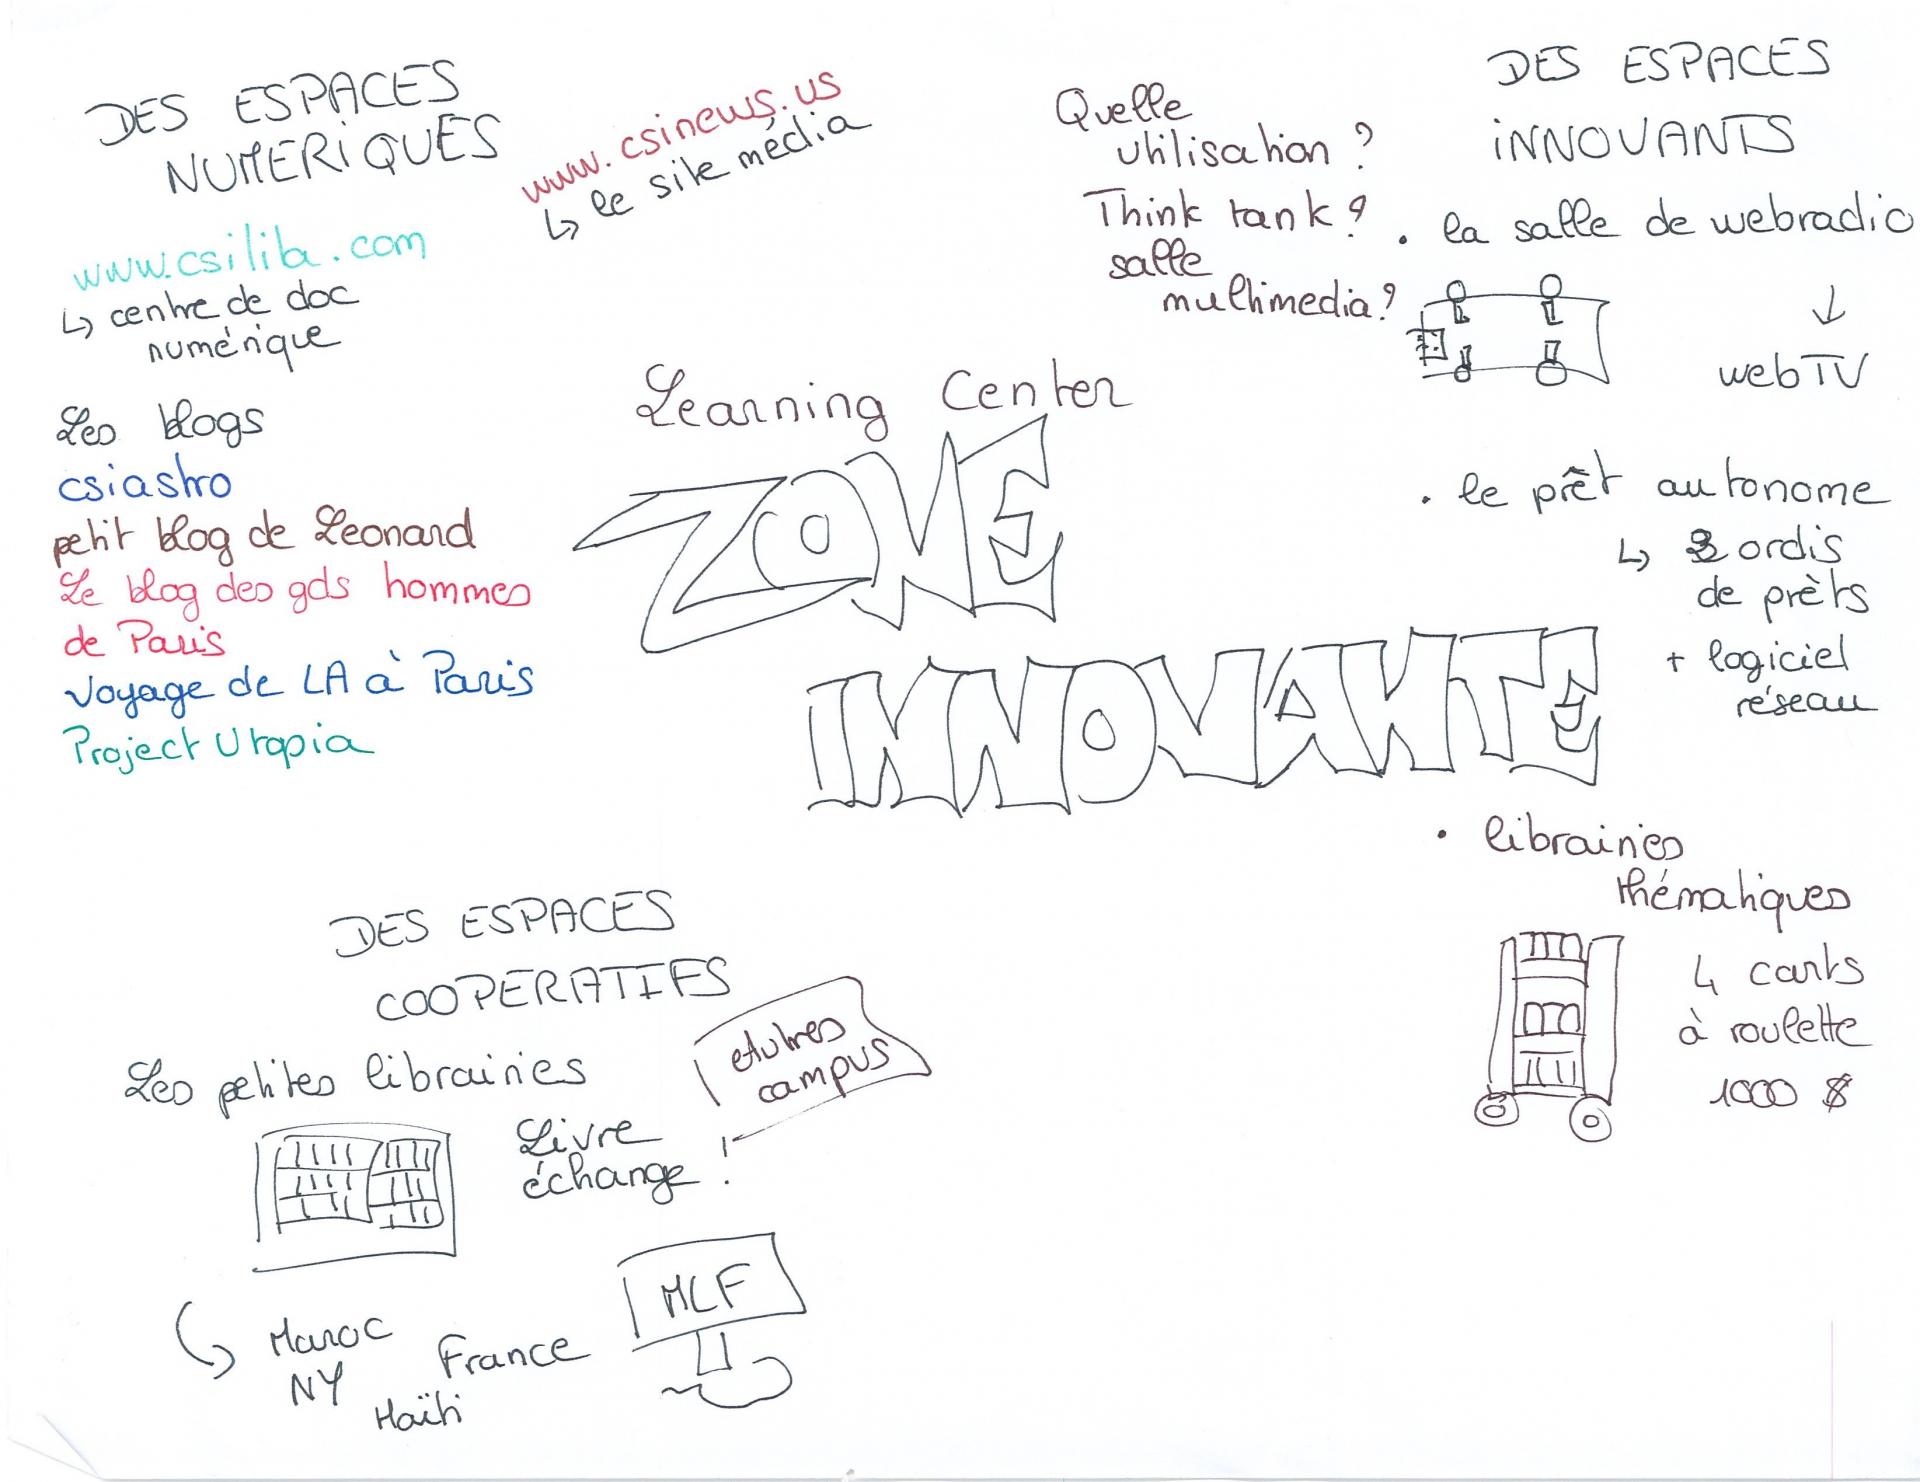 DES ESPACES
NUMERIQUES
www.csinews.us
↳ le site média
www.csiliba.com
↳ centre de doc
numérique
Les blogs
csiastro
petit blog de Leonard
Le blog des gds hommes
de Paris
Voyage de LA à Paris
Project Utopia
Quelle
utilisation ?
Think tank ?
salle
multimedia ?
Learning Center
ZONE
INNOVANTE
DES ESPACES
INNOVANTS
. la salle de webradio
↓
webTV
. le prêt autonome
↳ ordis
de prèts
+ logiciel
réseau
. librairies
thématiques
4 carts
à roulette
1000 $
DES ESPACES
COOPERATIFS
Les petites librairies
Livre
échange !
campus
Maroc
NY
France
Haïti
MLF